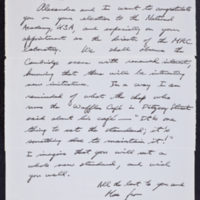 Alexandra and I want to congratulate
you on your election to the National
Academy USA, and especially on your
appointment as the director of the MRC
Laboratory. We shall observe the
Cambridge scene with renewed interest,
knowing that there will be interesting
new initiatives. In a way I am
reminded of what the chap who
runs the "Waffles Café" in Fitzroy Street
said about his café — "It's one
thing to set the standard; it's
something else to maintain it!"
I imagine that you will set a
whole new standard, and wish
you well.
All the best to you and